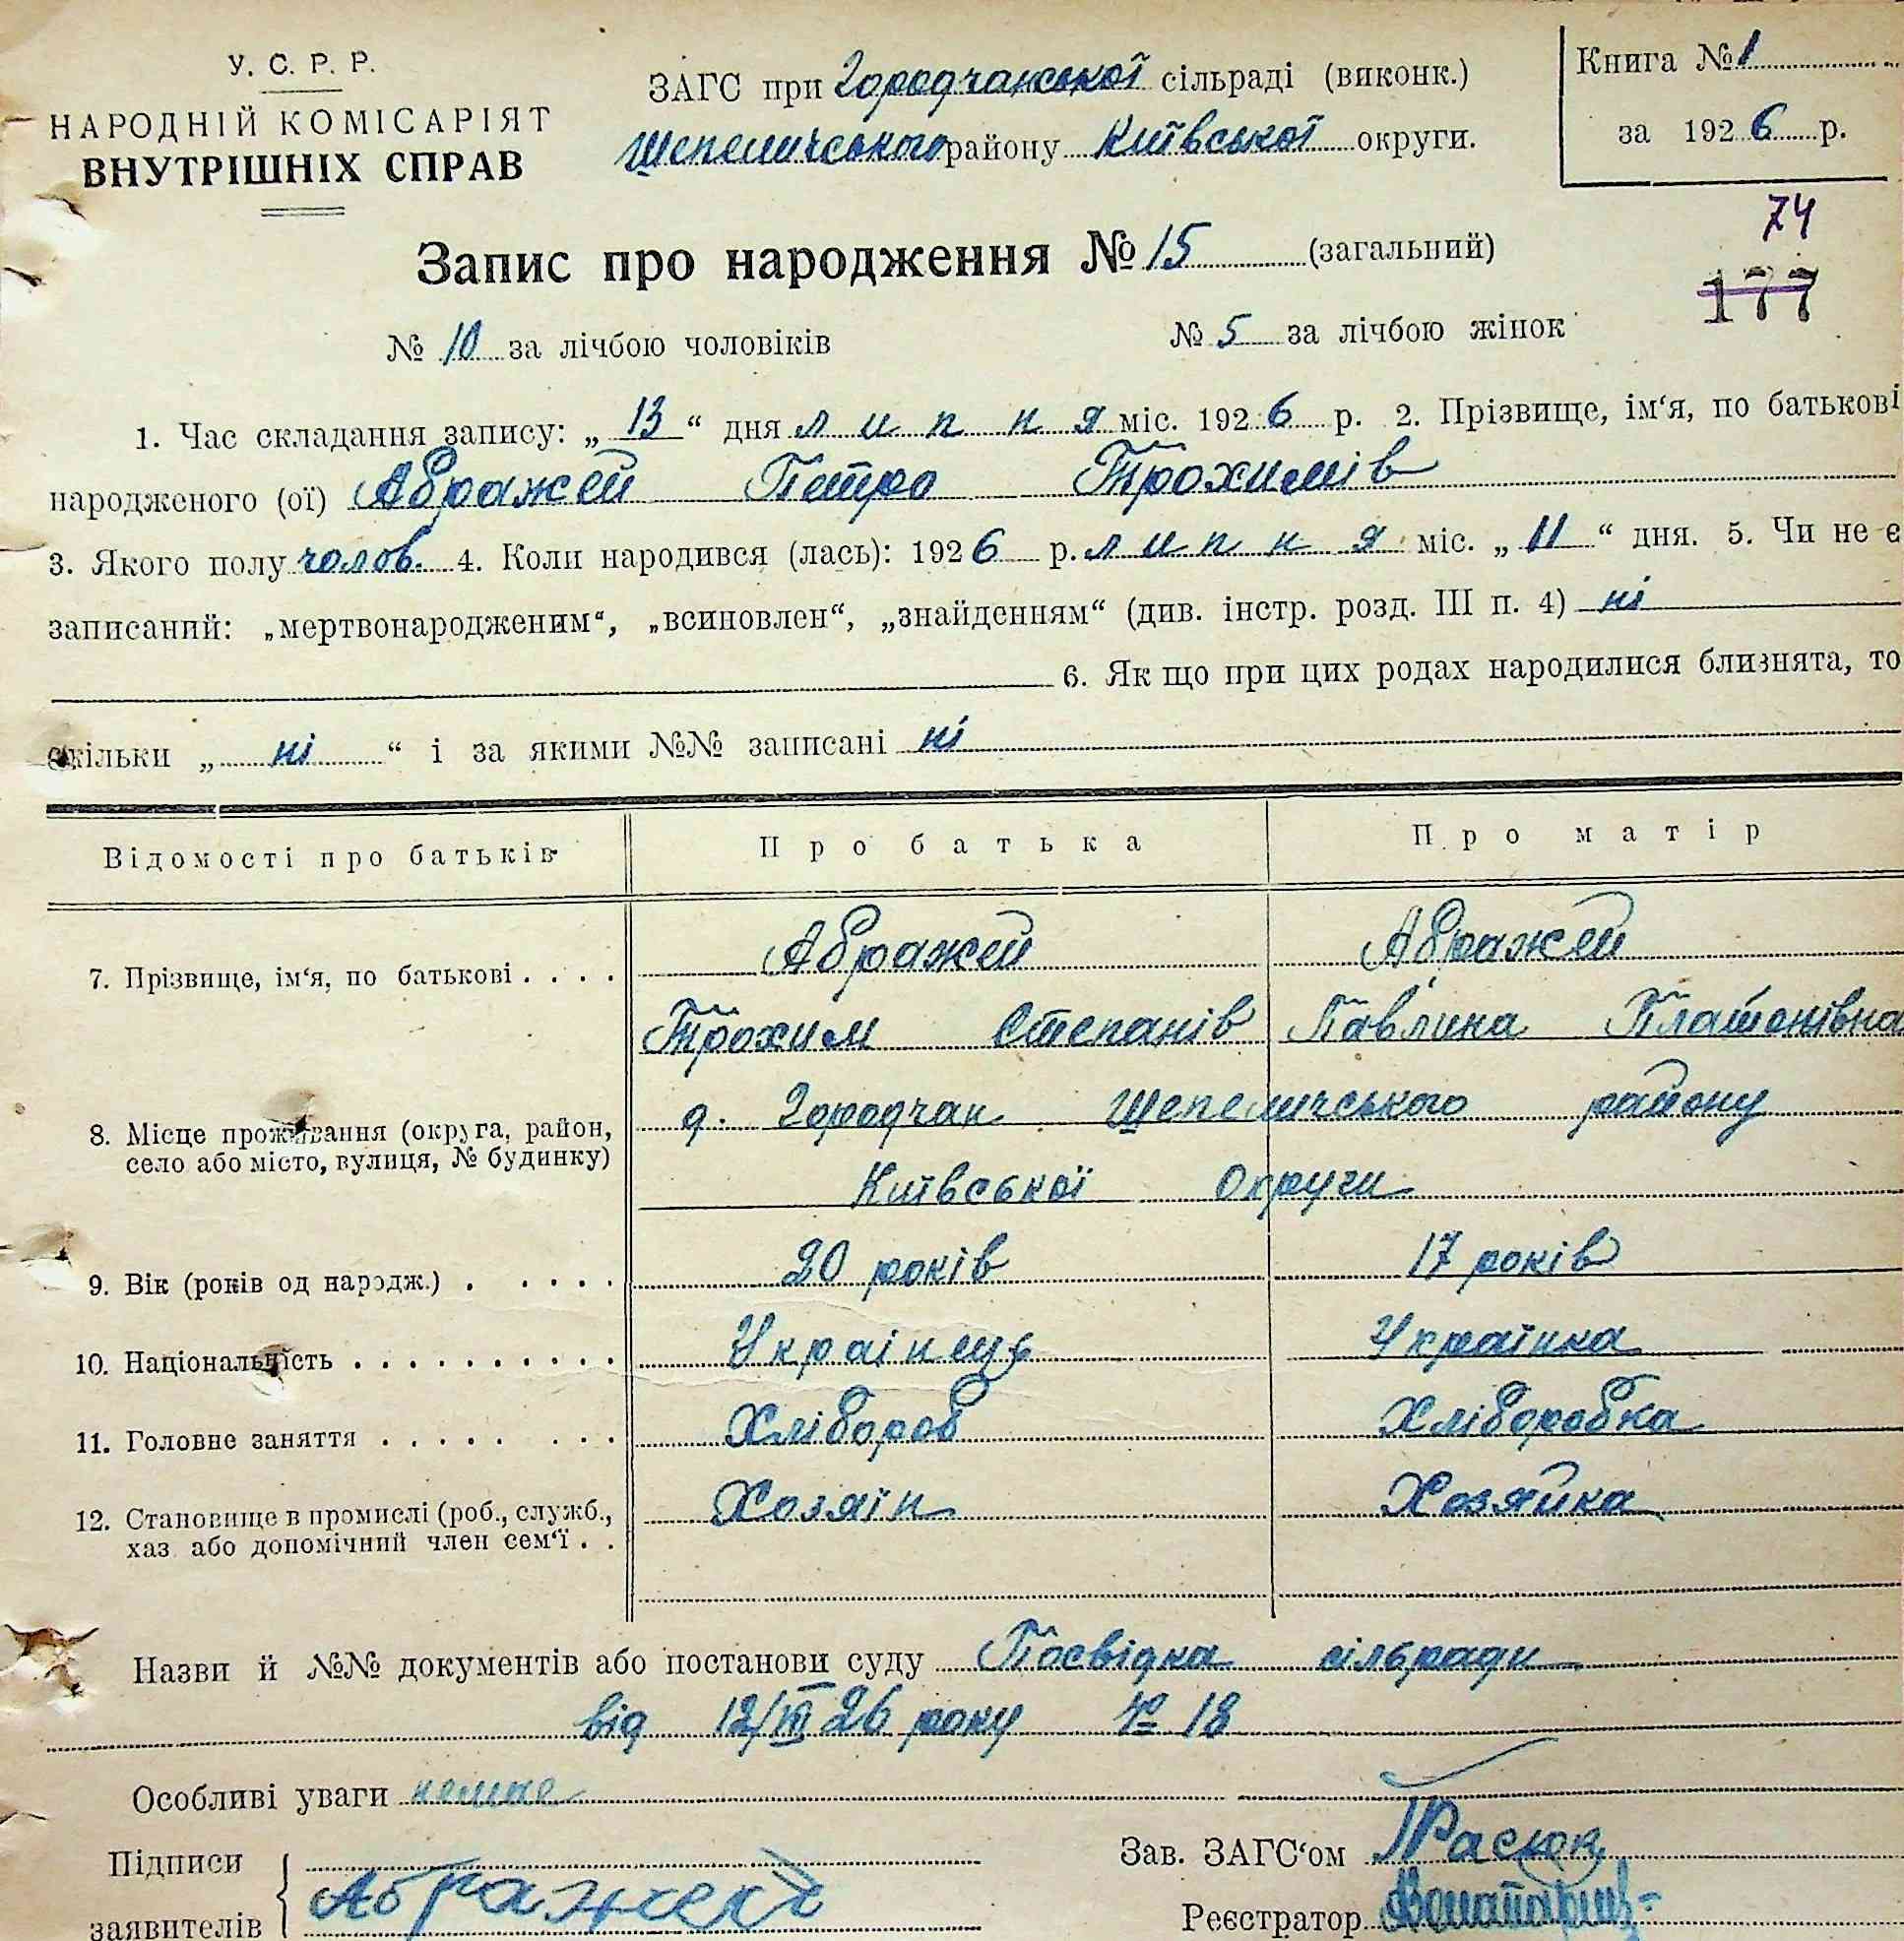 У. С. Р. Р.
НАРОДНІЙ КОМІСАРІЯТ
ВНУТРІШНІХ СПРАВ
ЗАГС при Городчанської сільраді (виконк.)
Шепеличського району Київської округи.
Книга № 1
за 1926 р.
74
177
Запис про народження № 15 (загальний)
№ 10 за лічбою чоловіків № 5 за лічбою жінок
1. Час складання запису: „ 13 “ дня липня міс. 1926 р. 2. Прізвище, ім‘я, по батькові
народженого (ої) Абражей Петро Трохимів
3. Якого полу чолов. 4. Коли народився (лась): 1926 р. липня міс. „ 11 “ дня. 5. Чи не є
записаний: „мертвонародженим“, „всиновлен“, „знайденням“ (див. інстр. розд. III п. 4) ні
6. Як що при цих родах народилися близнята, то
скільки „ ні “ і за якими №№ записані ні
Відомості про батьків Про батька Про матір
7. Прізвище, ім‘я, по батькові . . . . Абражей Абражей
Трохим Степанів Павлина Платонівна
8. Місце проживання (округа, район, село або місто, вулиця, № будинку) д. Городчан Шепеличського району
Київської Округи
9. Вік (років од народж.) . . . . . 20 років 17 років
10. Національність . . . . . . . . . . Українець Українка
11. Головне заняття . . . . . . . . Хлібороб Хлібороbка
12. Становище в промислі (роб., служб.,
хаз або допомічний член сем‘ї . . Хозяїн Хозяйка
Назви й №№ документів або постанови суду Посвідка сільради
від 12/VII 26 року № 18
Особливі уваги немае
Підписи
заявителів Абражей
Зав. ЗАГС‘ом
Реєстратор